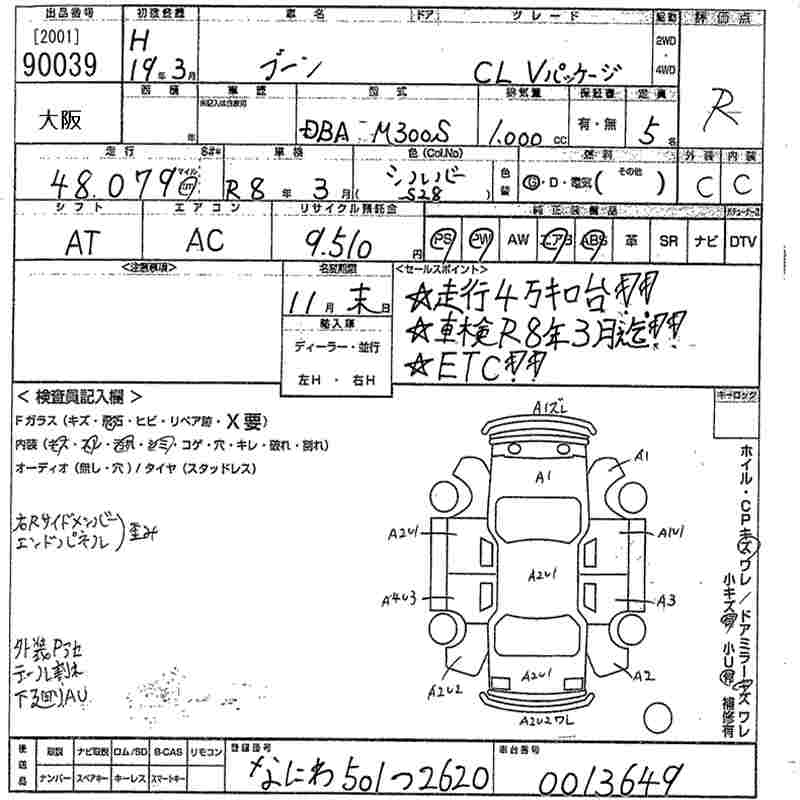 出品番号 初度登録 車名 ドア グレード 駆動 評価点
[2001] 90039 H 19年3月 ブーン CL Vパッケージ 2WD・4WD R
大阪 車歴 型式 排気量 保証書 定員
年 DBA-M300S 1.000cc 有・無 5名
走行 車検 色(Col.No) 燃料 外装 内装
48.079 マイル R8年3月 シルバー S28 色替 G・D・電気( その他 ) C C
シフト エアコン リサイクル預託金 純正装備品
AT AC 9.510円 PS PW AW エアB ABS 革 SR ナビ DTV
<注意事項> 名変期限 <セールスポイント>
11月末日 ☆走行4万キロ台!!
輸入車 ☆車検R8年3月迄!!
ディーラー・並行 ☆ETC!!
左H・右H
<検査員記入欄> キーロック
Fガラス(キズ・飛石・ヒビ・リペア跡・X要)
内装(キズ・スレ・汚れ・シミ・コゲ・穴・キレ・破れ・割れ)
オーディオ(無し・穴)/タイヤ(スタッドレス)
右Rサイドメンバー 歪み
エンドパネル
外装Pアセ
テール割れ
下廻りAU
A1ズレ
A1 A1
A2U1 A1U1
A2U1
A4U3 A3
A2U2 A2U1 A2
A2U2ワレ
ホイル・CPキズワレ/ドアミラーキズワレ
小キズ有 小U有 補修有
後送品 取説 ナビ取説 ロム/SD B-CAS リモコン 登録番号 車台番号
ナンバー スペアキー キーレス スマートキー なにわ501つ2620 0013649